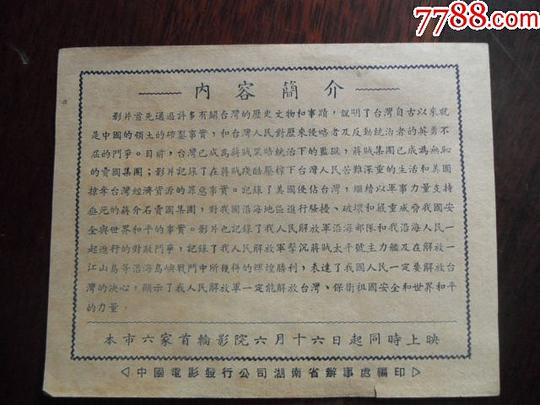 7788.com
内容簡介
影片首先通過許多有關台灣的歷史文物和事蹟，說明了台灣自古以來就
是中國的領土的確鑿事實，和台灣人民對歷來侵略者及反動統治者的英勇不
屈的鬥爭。目前，台灣已成爲蔣賊黑暗統治下的監獄，蔣賊集團已成爲無恥
的賣國集團；影片記錄了在蔣賊殘酷壓榨下台灣人民苦難深重的生活和美國
掠奪台灣經濟資源的罪惡事實。記錄了美國侵佔台灣，繼續以軍事力量支持
蔣介石賣國集團，對我國沿海地區進行騷擾、破壞和嚴重威脅我國安
全與世界和平的事實。影片也記錄了我人民解放軍沿海部隊和我沿海人民一
起進行的對敵鬥爭，記錄了我人民解放軍擊沉蔣賊太平號主力艦及在解放一
江山島等沿海島嶼戰鬥中所獲得的輝煌勝利，表達了我國人民一定要解放台
灣的決心，顯示了我人民解放軍一定能解放台灣、保衛祖國安全和世界和平
的力量。
本市六家首輪影院六月十六日起同時上映
中國電影發行公司湖南省辦事處編印